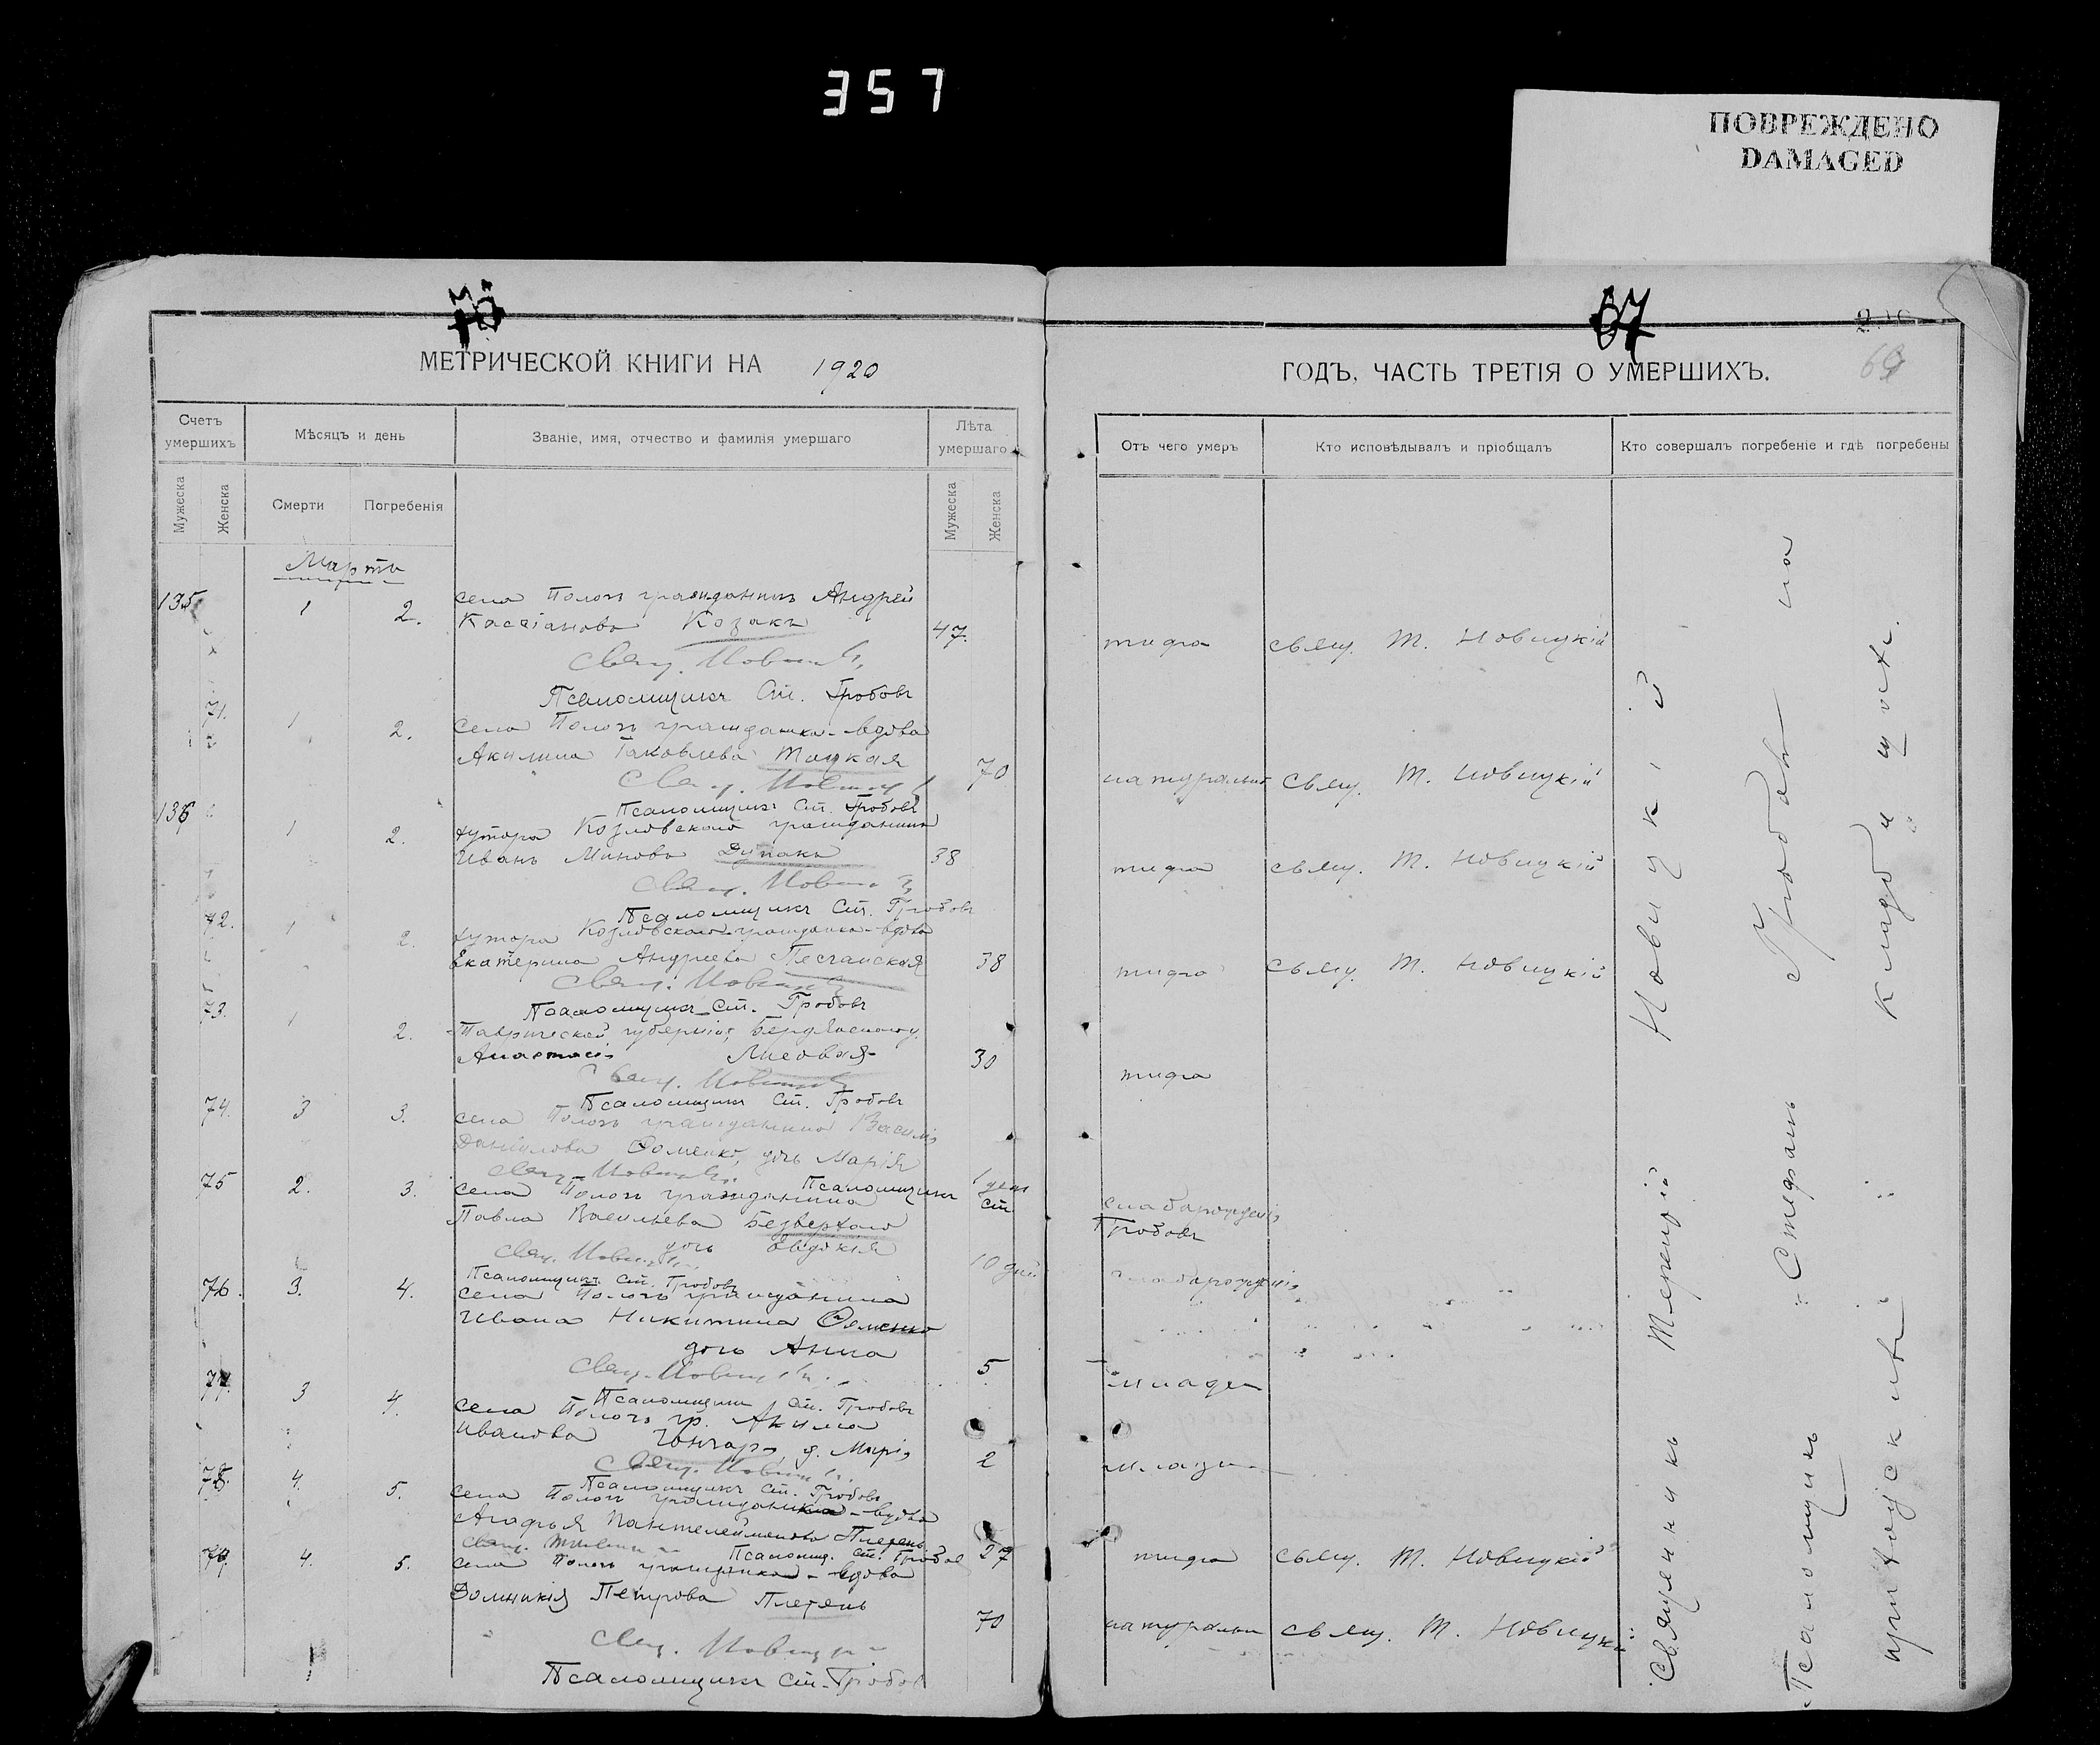 357
ПОВРЕЖДЕНО
DAMAGED
67
69
МЕТРИЧЕСКОЙ КНИГИ НА 1920
ГОДЪ, ЧАСТЬ ТРЕТІЯ О УМЕРШИХЪ.
Счетъ умершихъ
Мѣсяцъ и день
Званіе, имя, отчество и фамилія умершаго
Лѣта умершаго
Отъ чего умеръ
Кто исповѣдывалъ и пріобщалъ
Кто совершалъ погребеніе и гдѣ погребены
Мужеска
Женска
Смерти
Погребенія
Мужеска
Женска
Мартъ
135 1 2. села Пологъ гражданинъ Андрей
Кассіановъ Козакъ 47. тифа свящ. Т. Новицкій
Свящ. Новицкій
Псаломщикъ Ст. Гробовъ
71. 1 2. села Пологъ гражданка-вдова
Акилина Іаковлева 70 натуральн свящ. Т. Новицкій
Свящ. Новицкій
Псаломщикъ Ст. Гробовъ
136 1 2. хутора Козловскаго гражданинъ
Иванъ Миновъ Дупакъ 38 тифа свящ. Т. Новицкій
Свящ. Новицкій
Псаломщикъ Ст. Гробовъ
72. 1 2. хутора Козловскаго гражданка-вдова
Екатерина Андреева Песчанская 38 тифа свящ. Т. Новицкій
Свящ. Новицкій
Псаломщикъ Ст. Гробовъ
73. 1 2. Таврической губерніи, Бердянскаго у.
Анастасія Лисовая 30 тифа
Свящ. Новицкій
Псаломщикъ Ст. Гробовъ
74. 3 3. села Пологъ гражданина Василія
Даніилова Фоменко, дочь Марія 1 день слабарожденія
Свящ. Новицкій Псаломщикъ Ст. Гробовъ
75 2. 3. села Пологъ гражданина
Павла Васильева Безверхаго
дочь Евдокія 10 дней слабарожденія
Свящ. Новицкій
Псаломщикъ Ст. Гробовъ
76. 3. 4. села Пологъ гражданина
Ивана Никитина Фоменко
дочь Анна 5 младен
Свящ. Новицкій
Псаломщикъ Ст. Гробовъ
77. 3 4. села Пологъ гр. Акима
Иванова Гончаръ д. Марія 2
Свящ. Новицкій
Псаломщикъ Ст. Гробовъ
78. 4. 5. села Пологъ гражданка-вдова
Агафья Пантелеймонова Плетень 27 тифа свящ. Т. Новицкій
Псаломщ. Ст. Гробов
79. 4. 5. села Пологъ гражданка-вдова
Домникія Петрова Плетень 70 натуральн свящ. Т. Новицкій
Свящ. Новицкій
Псаломщикъ Ст. Гробов
Священникъ Терентій Новицкій
Псаломщикъ Стефанъ Гробовъ на
кладбищѣ.